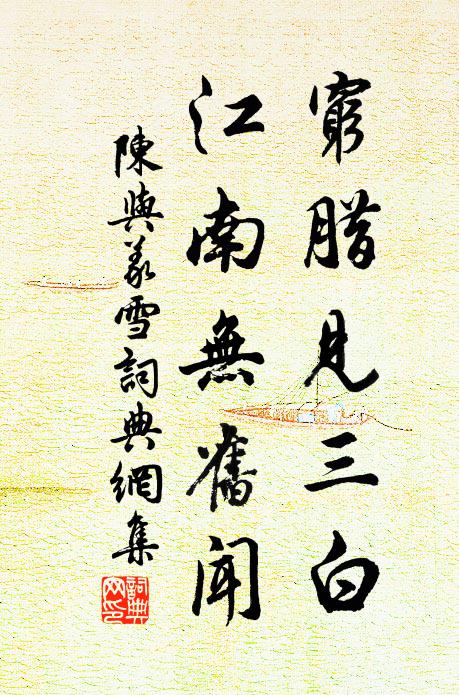 窮腊見三白
江南無舊聞
陳與義雪詞典網集
詞典網印